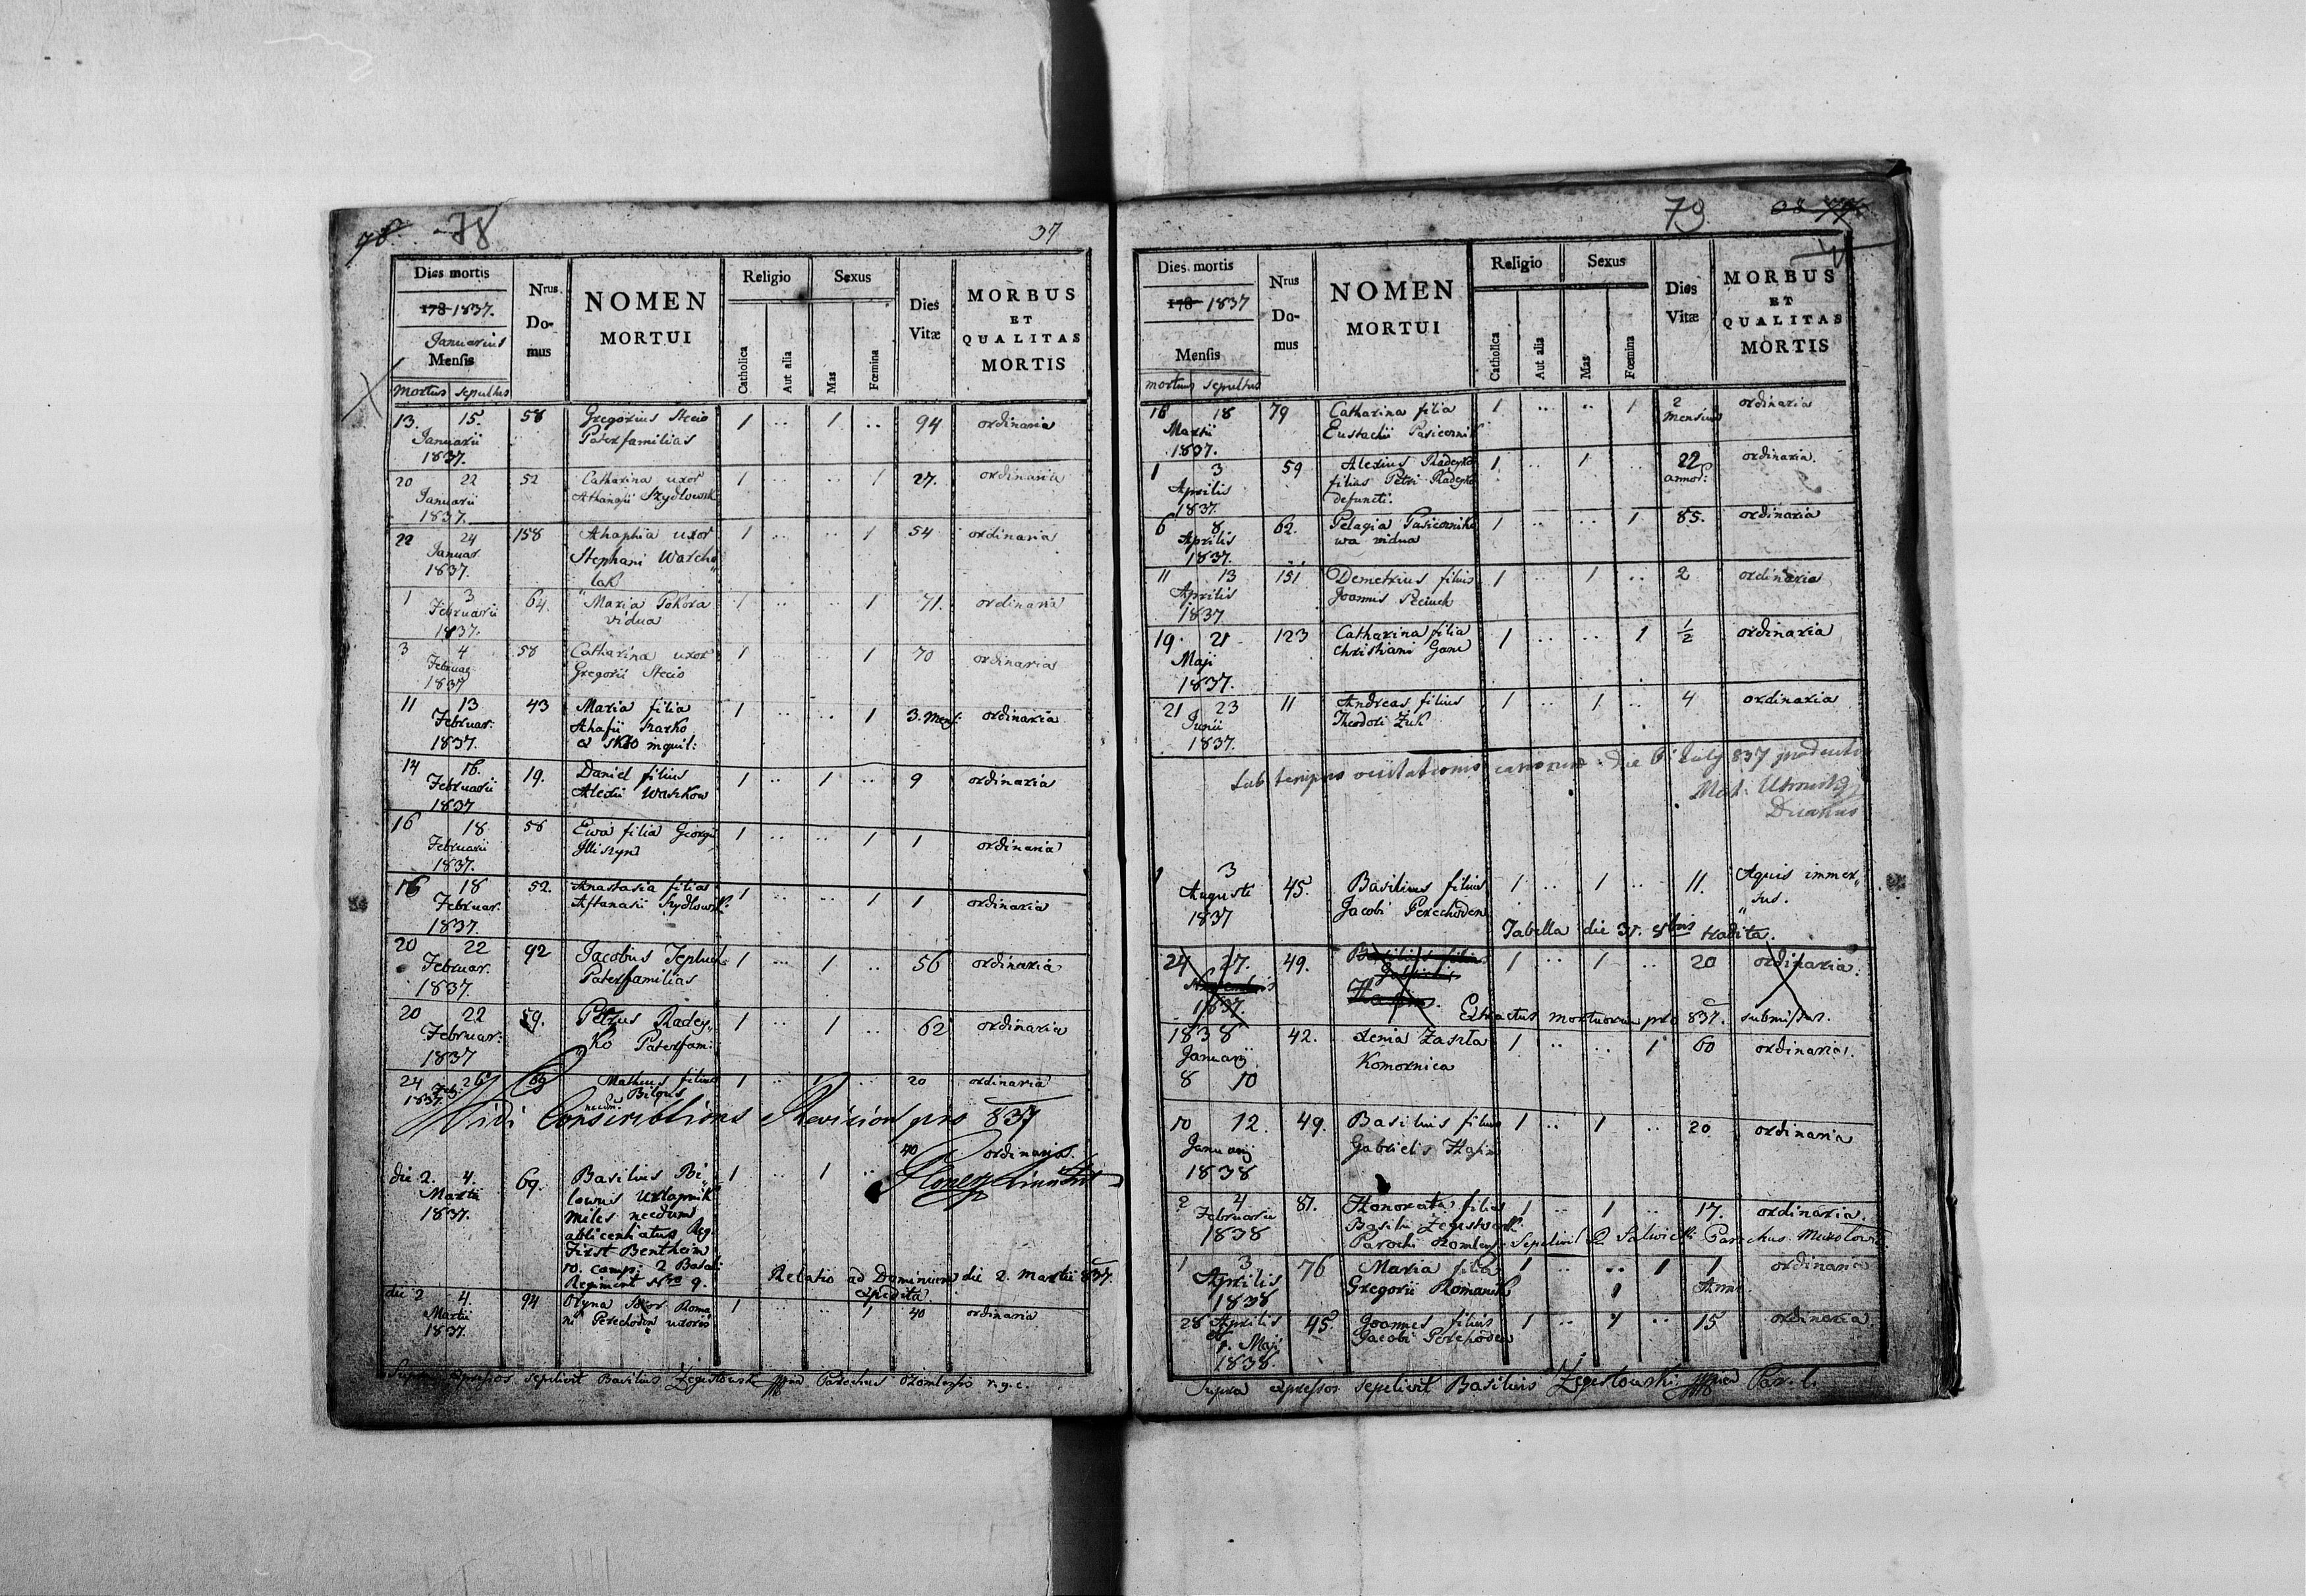 78. 78 37
Dies mortis
178 1837.
Januarius
Mensis
mortuus sepultus
Nrus.
Do-
mus
NOMEN
MORTUI
Religio
Catholica
Aut alia
Sexus
Mas
Fœmina
Dies
Vitæ
MORBUS
ET
QUALITAS
MORTIS
13. 15. 58 Gregorius Stecio 1 .. 1 .. 94 ordinaria
Januarii Paterfamilias
1837.
20 22 52 Catharina uxor 1 .. .. 1 27. ordinaria
Januarii Athanasii Szydlowsk
1837.
22 24 158 Ahaphia uxor 1 .. .. 1 54 ordinaria
Januar. Stephani Warcho„
1837. lak
1 3 64. Maria Pokora 1 .. .. 1 71. ordinaria
Februarii vidua
1837.
3 4 58 Catharina uxor 1 .. .. 1 70 ordinaria
Februar Gregorii Stecio
1837
11 13 43 Maria filia 1 .. .. 1 3. Mens: ordinaria
Februar. Ahafii
1837. inquil:
14 16. 19. Daniel filius 1 .. 1 .. 9 ordinaria
Februarii Alexii Waszkow
1837
16 18 58 Ewa filia Georgii 1 .. .. 1 1 ordinaria
Februarii Illiszyn
1837.
16 18 52. Anastasia filia 1 .. .. 1 1 ordinaria
Februar. Aftanasii Szydlowsk.
1837.
20 22 92 Jacobus 1 ... 1 .. 56 ordinaria
Februar. Paterfamilias
1837.
20 22 59. Petrus Radey„ 1 .. 1 .. 62 ordinaria
Februar: ko Paterfam:
1837
24 26 69 Matheus filius 1 .. 1 .. 20 ordinaria
Feb.
1837.
Vidi Conscribtions Revision pro 837
40 ordinaria.
die 2. 4. 69. Basilius Bi„ 1 .. 1 ..
Martii lowus Urlapnik
1837. miles necdum
ablicentiatus Reg.
First Bentheim
10. comp: 2 Batali
Regiment Nro 9.
Relatio ad Dominium die 2. Martii 837.
expedita.
die 2 4. 94 Oryna Roma 1 .. .. 1 40 ordinaria
Martii ni Perechoden uxoris
1837.
Supra expressos sepelivit Basilius Żegestowski mpria Parochus r. g. c.
79 77.
Dies mortis
178 1837
Mensis
mortuus sepultus
Nrus
Do-
mus
NOMEN
MORTUI
Religio
Catholica
Aut alia
Sexus
Mas
Fœmina
Dies
Vitæ
MORBUS
ET
QUALITAS
MORTIS
16 18 79 Catharina filia 1 .. .. 1 2 ordinaria
Martii Eustachii Pasicznik Mensium
1837.
1 3 59 Alexius Radeyko 1 .. 1 .. 22 ordinaria.
Aprilis filius Petri Radeyko annor:
1837. defuncti.
6 8 62. Pelagia Pasiczniko 1 .. .. 1 85. ordinaria
Aprilis wa vidua
1837.
11 13 151 Demetrius filius 1 .. 1 .. 2 ordinaria
Aprilis Joannis
1837
19. 21 123 Catharina filia 1 .. .. 1 1/2 ordinaria
Maji Christiani
1837.
21 23 11 Andreas filius 1 .. 1 .. 4 ordinaria
Junii Theodori Żuk
1837.
Sub tempus visitationis canonicae die 6 July 837
Decanus
1 3 45. Basilius filius 1 .. 1 .. 11. Aquis immer„
Augusti Jacobi Perechoden „sus.
1837
Tabella die 31. 8bris tradita.
24 27. 49. Basilius filius 1 .. 1 .. 20 ordinaria.
Gabrielis
1837.
Extractus mortuorum pro 837. submissus.
1838 42. Xenia Zaszla 1 .. .. 1 60 ordinaria.
Januarij Komornica
8 10
10 12. 49. Basilius filius 1 .. 1 .. 20 ordinaria
Januarij Gabrielis
1838
2 4 81. Honorata filia 1 .. 1 .. 17. ordinaria.
Februarii Basilii Żegestowski
1838 Parochi Sepelivit Parochus
1 3 76 Maria filia 1 .. .. 1 1 ordinaria
Aprilis Gregorii Romaniuk
1838
28 Aprilis 45. Joannes filius 1 .. 1 .. 15 ordinaria.
Maji Jacobi Perehoden
1838.
Supra expressos sepelivit Basilius Żegestowski mpria Par. l.